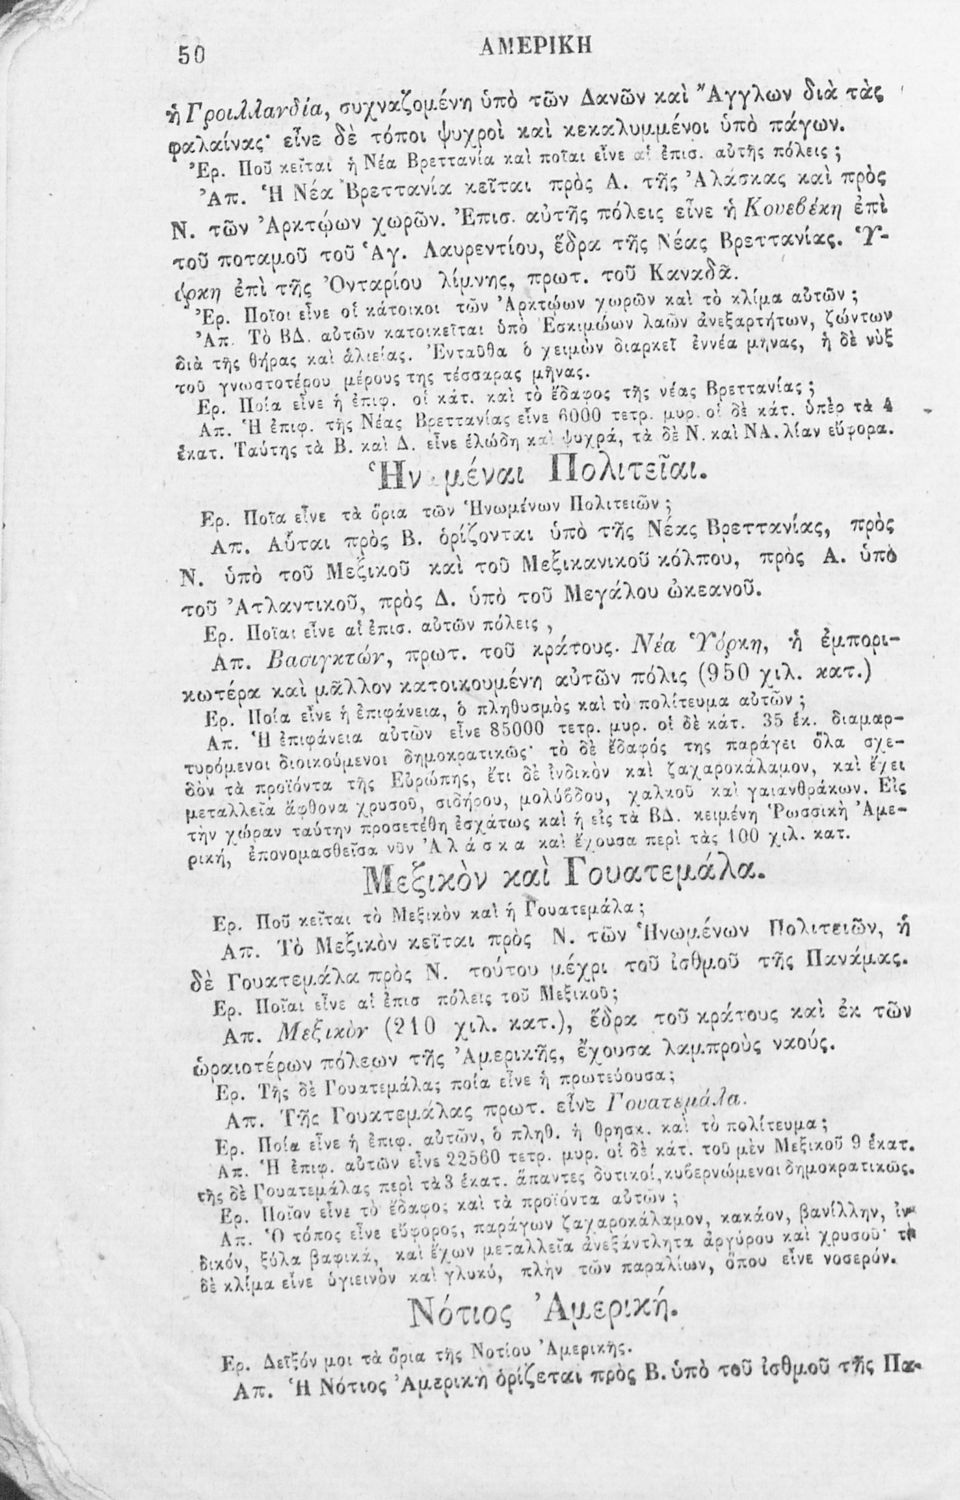 50 ΑΜΕΡΙΚΗ
ἡ Γροιλλανδία, συχναζομένη ὑπὸ τῶν Δανῶν καὶ Ἄγγλων διὰ τὰς
φαλαίνας· εἶνε δὲ τόποι ψυχροὶ καὶ κεκαλυμμένοι ὑπὸ πάγων.
Ἐρ. Ποῦ κεῖται ἡ Νέα Βρεττανία καὶ ποῖαι εἶνε αἱ ἐπισ. αὐτῆς πόλεις ;
Ἀπ. Ἡ Νέα Βρεττανία κεῖται πρὸς Α. τῆς Ἀλάσκας καὶ πρὸς
Ν. τῶν Ἀρκτῴων χωρῶν. Ἐπισ. αὐτῆς πόλεις εἶνε ἡ Κουεβέκη ἐπὶ
τοῦ ποταμοῦ τοῦ Ἁγ. Λαυρεντίου, ἕδρα τῆς Νέας Βρεττανίας. Ὑ-
όρκη ἐπὶ τῆς Ὀνταρίου λίμνης, πρωτ. τοῦ Καναδᾶ.
Ἐρ. Ποῖοι εἶνε οἱ κάτοικοι τῶν Ἀρκτῴων χωρῶν καὶ τὸ κλίμα αὐτῶν ;
Ἀπ. Τὸ ΒΔ. αὐτῶν κατοικεῖται ὑπὸ Ἐσκιμώων λαῶν ἀνεξαρτήτων, ζώντων
διὰ τῆς θήρας καὶ ἁλιείας. Ἐνταῦθα ὁ χειμὼν διαρκεῖ ἐννέα μῆνας, ἡ δὲ νὺξ
τοῦ γνωστοτέρου μέρους της τέσσαρας μῆνας.
Ερ. Ποία εἶνε ἡ ἐπιφ. οἱ κάτ. καὶ τὸ ἔδαφος τῆς νέας Βρεττανίας ;
Απ. Ἡ ἐπιφ. τῆς Νέας Βρεττανίας εἶνε 6000 τετρ. μυρ. οἱ δὲ κάτ. ὑπὲρ τὰ 4
ἑκατ. Ταύτης τὰ Β. καὶ Δ. εἶνε ἑλώδη καὶ ψυχρά, τὰ δὲ Ν. καὶ ΝΑ. λίαν εὔφορα.
Ἡνωμέναι Πολιτεῖαι.
Ερ. Ποῖα εἶνε τὰ ὅρια τῶν Ἡνωμένων Πολιτειῶν ;
Απ. Αὗται πρὸς Β. ὁρίζονται ὑπὸ τῆς Νέας Βρεττανίας, πρὸς
Ν. ὑπὸ τοῦ Μεξικοῦ καὶ τοῦ Μεξικανικοῦ κόλπου, πρὸς Α. ὑπὸ
τοῦ Ἀτλαντικοῦ, πρὸς Δ. ὑπὸ τοῦ Μεγάλου ὠκεανοῦ.
Ερ. Ποῖαι εἶνε αἱ ἐπισ. αὐτῶν πόλεις ,
Απ. Βασιγκτών, πρωτ. τοῦ κράτους. Νέα Ὑόρκη, ἡ ἐμπορι-
κωτέρα καὶ μᾶλλον κατοικουμένη αὐτῶν πόλις (950 χιλ. κατ.)
Ερ. Ποία εἶνε ἡ ἐπιφάνεια, ὁ πληθυσμὸς καὶ τὸ πολίτευμα αὐτῶν ;
Απ. Ἡ ἐπιφάνεια αὐτῶν εἶνε 85000 τετρ. μυρ. οἱ δὲ κάτ. 35 ἑκ. διαμαρ-
τυρόμενοι διοικούμενοι δημοκρατικῶς· τὸ δὲ ἔδαφός της παράγει ὅλα σχε-
δὸν τὰ προϊόντα τῆς Εὐρώπης, ἔτι δὲ ἰνδικὸν καὶ ζαχαροκάλαμον, καὶ ἔχει
μεταλλεῖα ἄφθονα χρυσοῦ, σιδήρου, μολύβδου, χαλκοῦ καὶ γαιανθράκων. Εἰς
τὴν χώραν ταύτην προσετέθη ἐσχάτως καὶ ἡ εἰς τὰ ΒΔ. κειμένη Ῥωσσικὴ Ἀμε-
ρική, ἐπονομασθεῖσα νῦν Ἀλάσκα καὶ ἔχουσα περὶ τὰς 100 χιλ. κατ.
Μεξικὸν καὶ Γουατεμάλα.
Ερ. Ποῦ κεῖται τὸ Μεξικὸν καὶ ἡ Γουατεμάλα ;
Απ. Τὸ Μεξικὸν κεῖται πρὸς Ν. τῶν Ἡνωμένων Πολιτειῶν, ἡ
δὲ Γουατεμάλα πρὸς Ν. τούτου μέχρι τοῦ ἰσθμοῦ τῆς Πανάμας.
Ερ. Ποῖαι εἶνε αἱ ἐπισ πόλεις τοῦ Μεξικοῦ ;
Απ. Μεξικὸν (210 χιλ. κατ.), ἕδρα τοῦ κράτους καὶ ἐκ τῶν
ὡραιοτέρων πόλεων τῆς Ἀμερικῆς, ἔχουσα λαμπροὺς ναούς.
Ερ. Τῆς δὲ Γουατεμάλας ποία εἶνε ἡ πρωτεύουσα ;
Απ. Τῆς Γουατεμάλας πρωτ. εἶνε Γουατεμάλα.
Ερ. Ποία εἶνε ἡ ἐπιφ. αὐτῶν, ὁ πληθ. ἡ θρησκ. καὶ τὸ πολίτευμα ;
Απ. Ἡ ἐπιφ. αὐτῶν εἶνε 22560 τετρ. μυρ. οἱ δὲ κάτ. τοῦ μὲν Μεξικοῦ 9 ἑκατ.
τῆς δὲ Γουατεμάλας περὶ τὰ 3 ἑκατ. ἅπαντες δυτικοί, κυβερνώμενοι δημοκρατικῶς.
Ερ. Ποῖον εἶνε τὸ ἔδαφος καὶ τὰ προϊόντα αὐτῶν ;
Απ. Ὁ τόπος εἶνε εὔφορος, παράγων ζαχαροκάλαμον, κακάον, βανίλλην, ἰν-
δικόν, ξύλα βαφικά, καὶ ἔχων μεταλλεῖα ἀνεξάντλητα ἀργύρου καὶ χρυσοῦ· τὸ
δὲ κλίμα εἶνε ὑγιεινὸν καὶ γλυκύ, πλὴν τῶν παραλίων, ὅπου εἶνε νοσερόν.
Νότιος Ἀμερική.
Ερ. Δεῖξόν μοι τὰ ὅρια τῆς Νοτίου Ἀμερικῆς.
Απ. Ἡ Νότιος Ἀμερικὴ ὁρίζεται πρὸς Β. ὑπὸ τοῦ ἰσθμοῦ τῆς Πα-